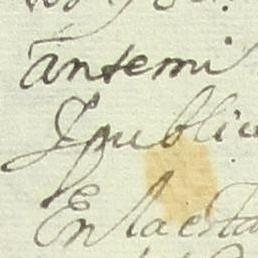 antemi
Ypublic
En la esta